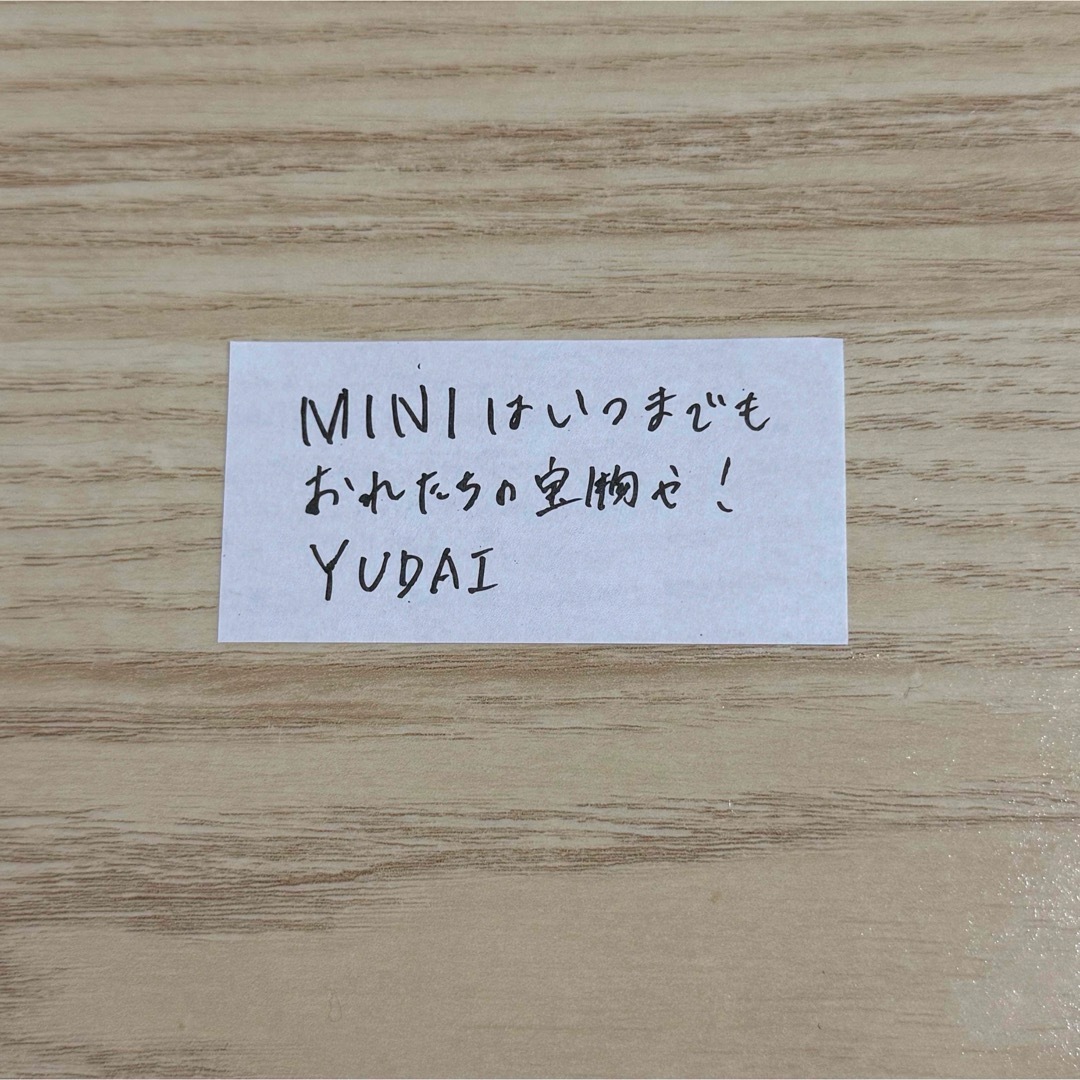 MINIはいつまでも
おれたちの宝物や!
YUDAI